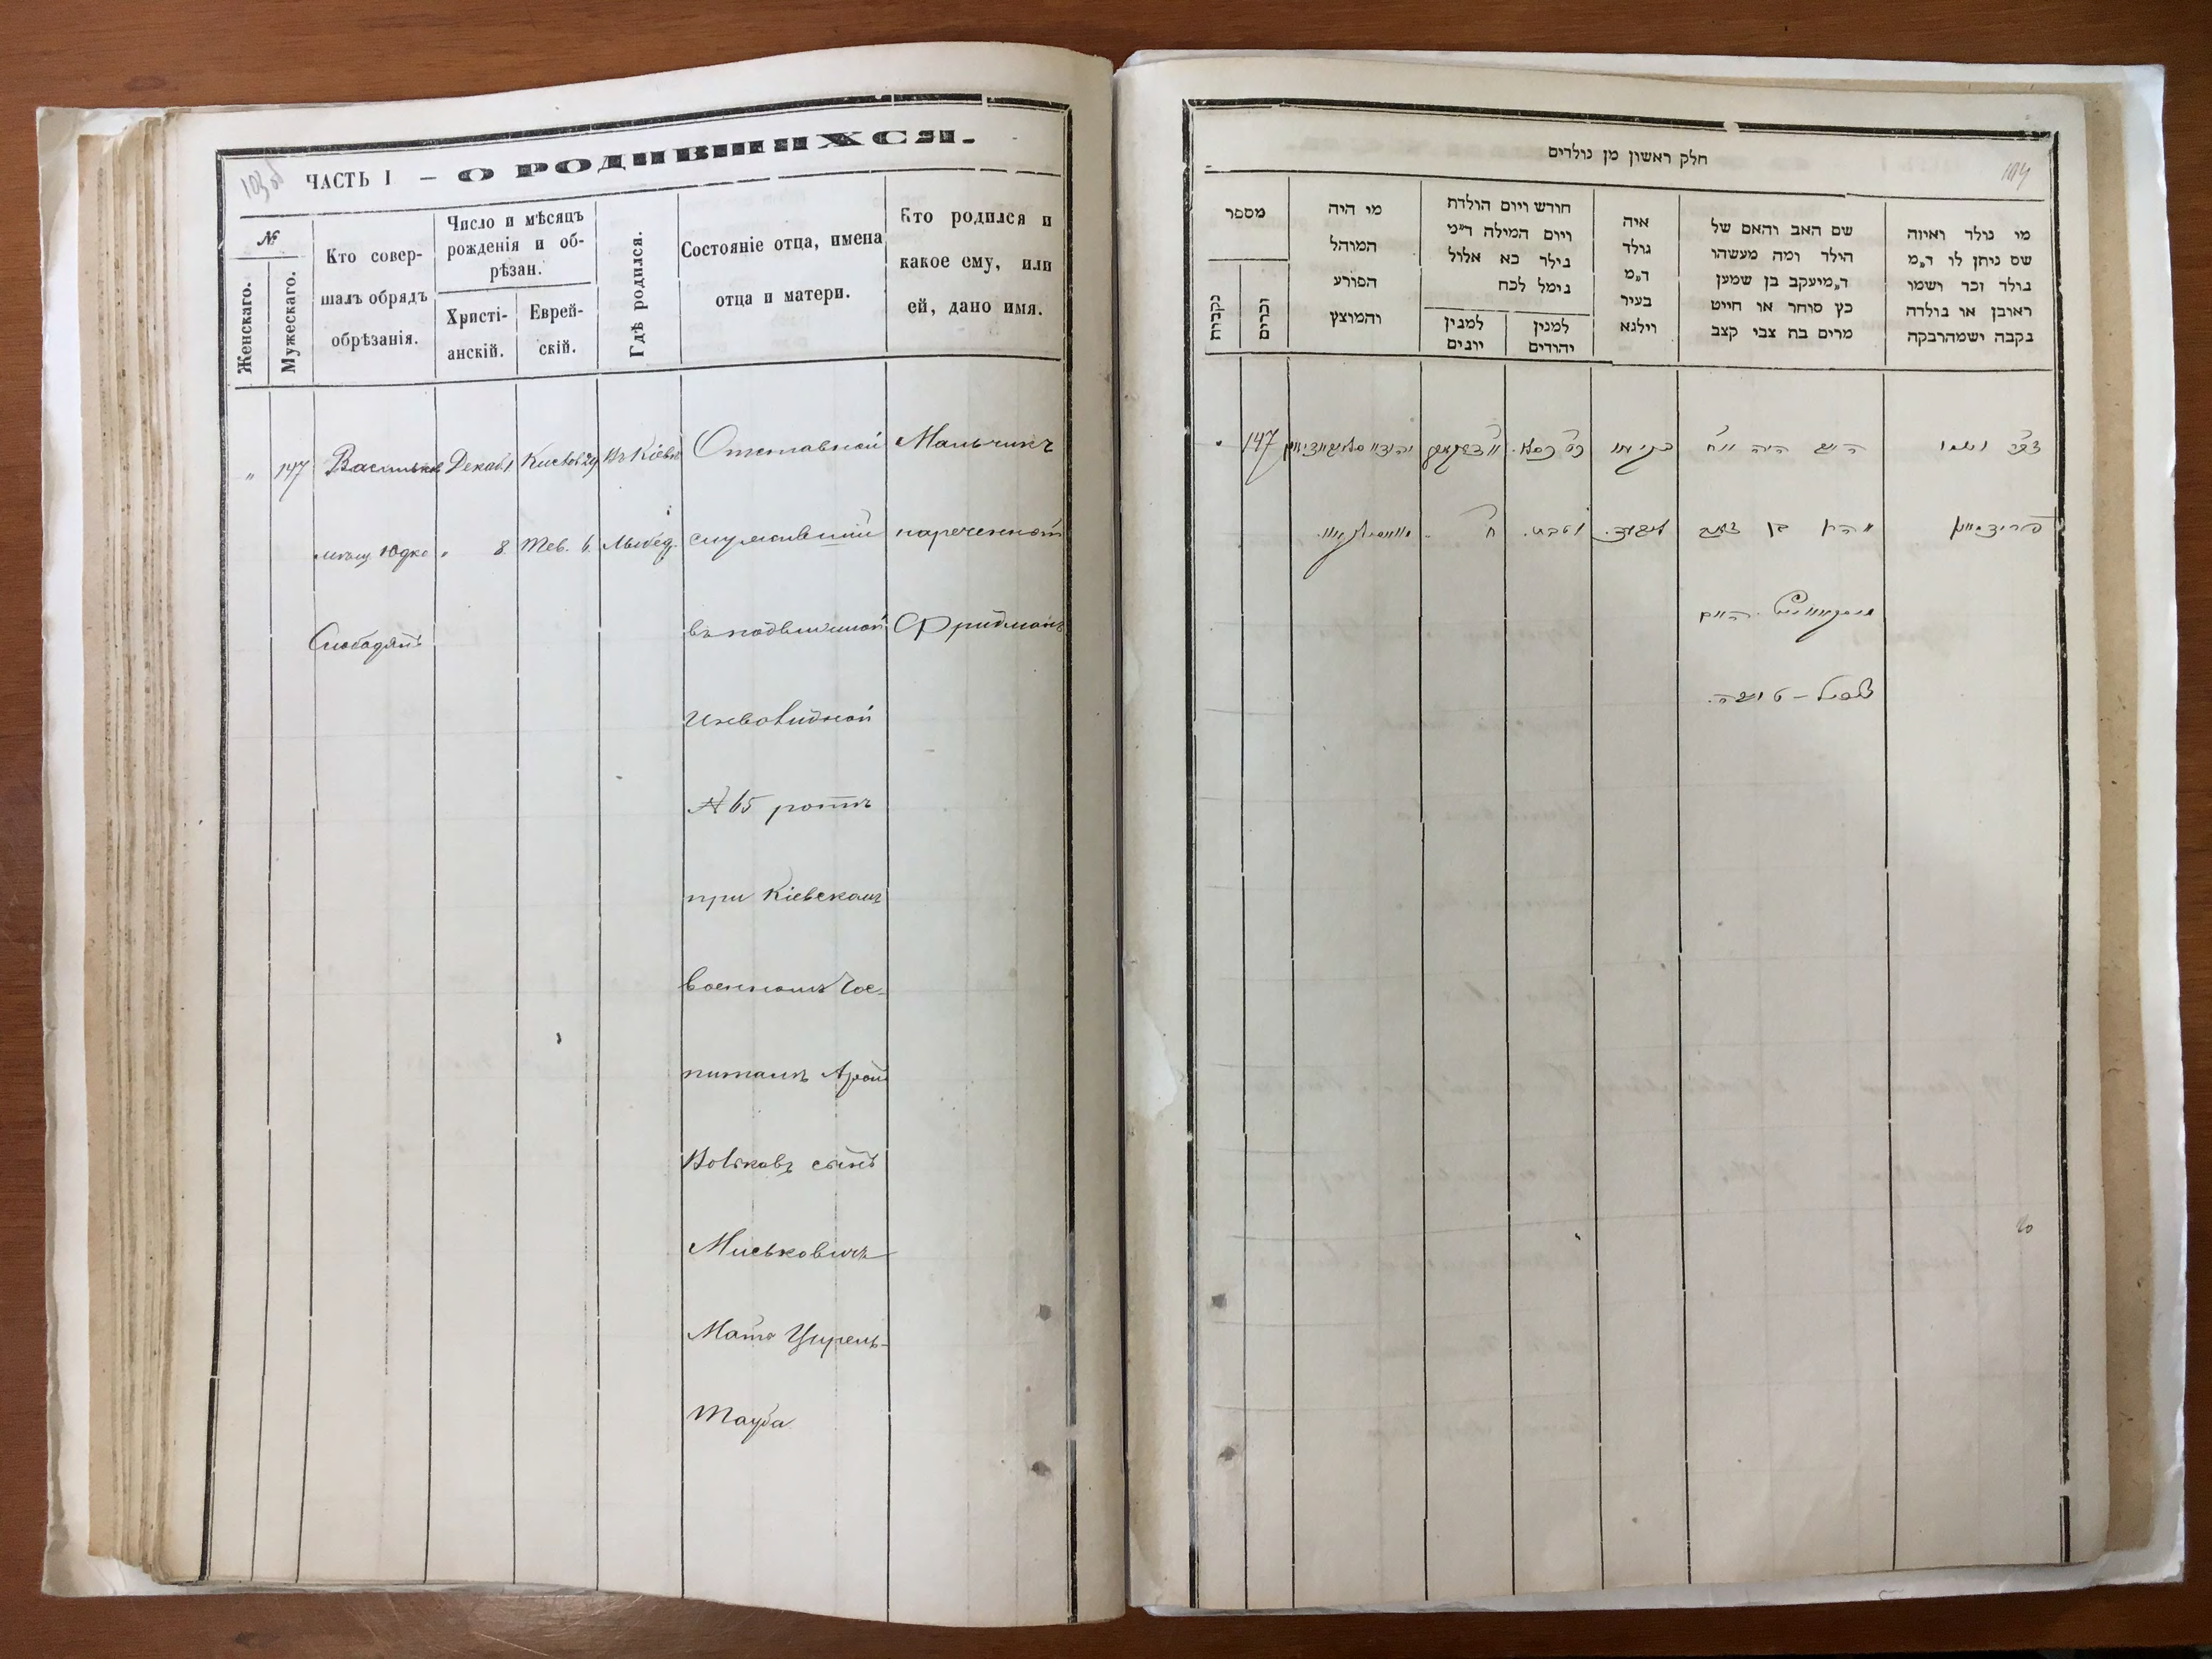 103 об
ЧАСТЬ I — О РОДИВШИХСЯ.
№
Женскаго.
Мужескаго.
Кто совер-
шалъ обрядъ
обрѣзанія.
Число и мѣсяцъ
рожденія и об-
рѣзан.
Христі-
анскій.
Еврей-
скій.
Гдѣ родился.
Состояніе отца, имена
отца и матери.
Кто родился и
какое ему, или
ей, дано имя.
" 147
Васильков
мѣщ. Юдко
Слободян
Декаб. 1
" 8
Кислев 29
Тев. 6.
Въ Кіевѣ
Лыбед.
Отставной
служивший
въ подвижной
инвалидной
№ 65 ротѣ
при Кіевскомъ
военномъ Гос-
питалѣ Арон
Вольковъ сынъ
Миськовичъ
Мать Цирель-
Тауба
Мальчикъ
нареченной
Фридманъ
חלק ראשון מן נולדים
104
מספר
נקבות
זכרים
מי היה
המוהל
הפורע
והמוצץ
חורש ויום הולדת
ויום המילה ד"מ
נולד כא אלול
נימל לכח
למנין
יונים
למנין
יהודים
איה
נולד
ד"מ
בעיר
וילנא
שם האב והאם של
הילד ומה מעשהו
ד"מ יעקב בן שמען
כץ סוחר או חייט
מרים בת צבי קצב
מי נולד ואיזה
שם ניתן לו ד"מ
נולד זכר ושמו
ראובן או נולדה
נקבה ישמה רבקה
147
כט כסלו.
ו טבת.
ח
אהרן בן
זכר ושמו